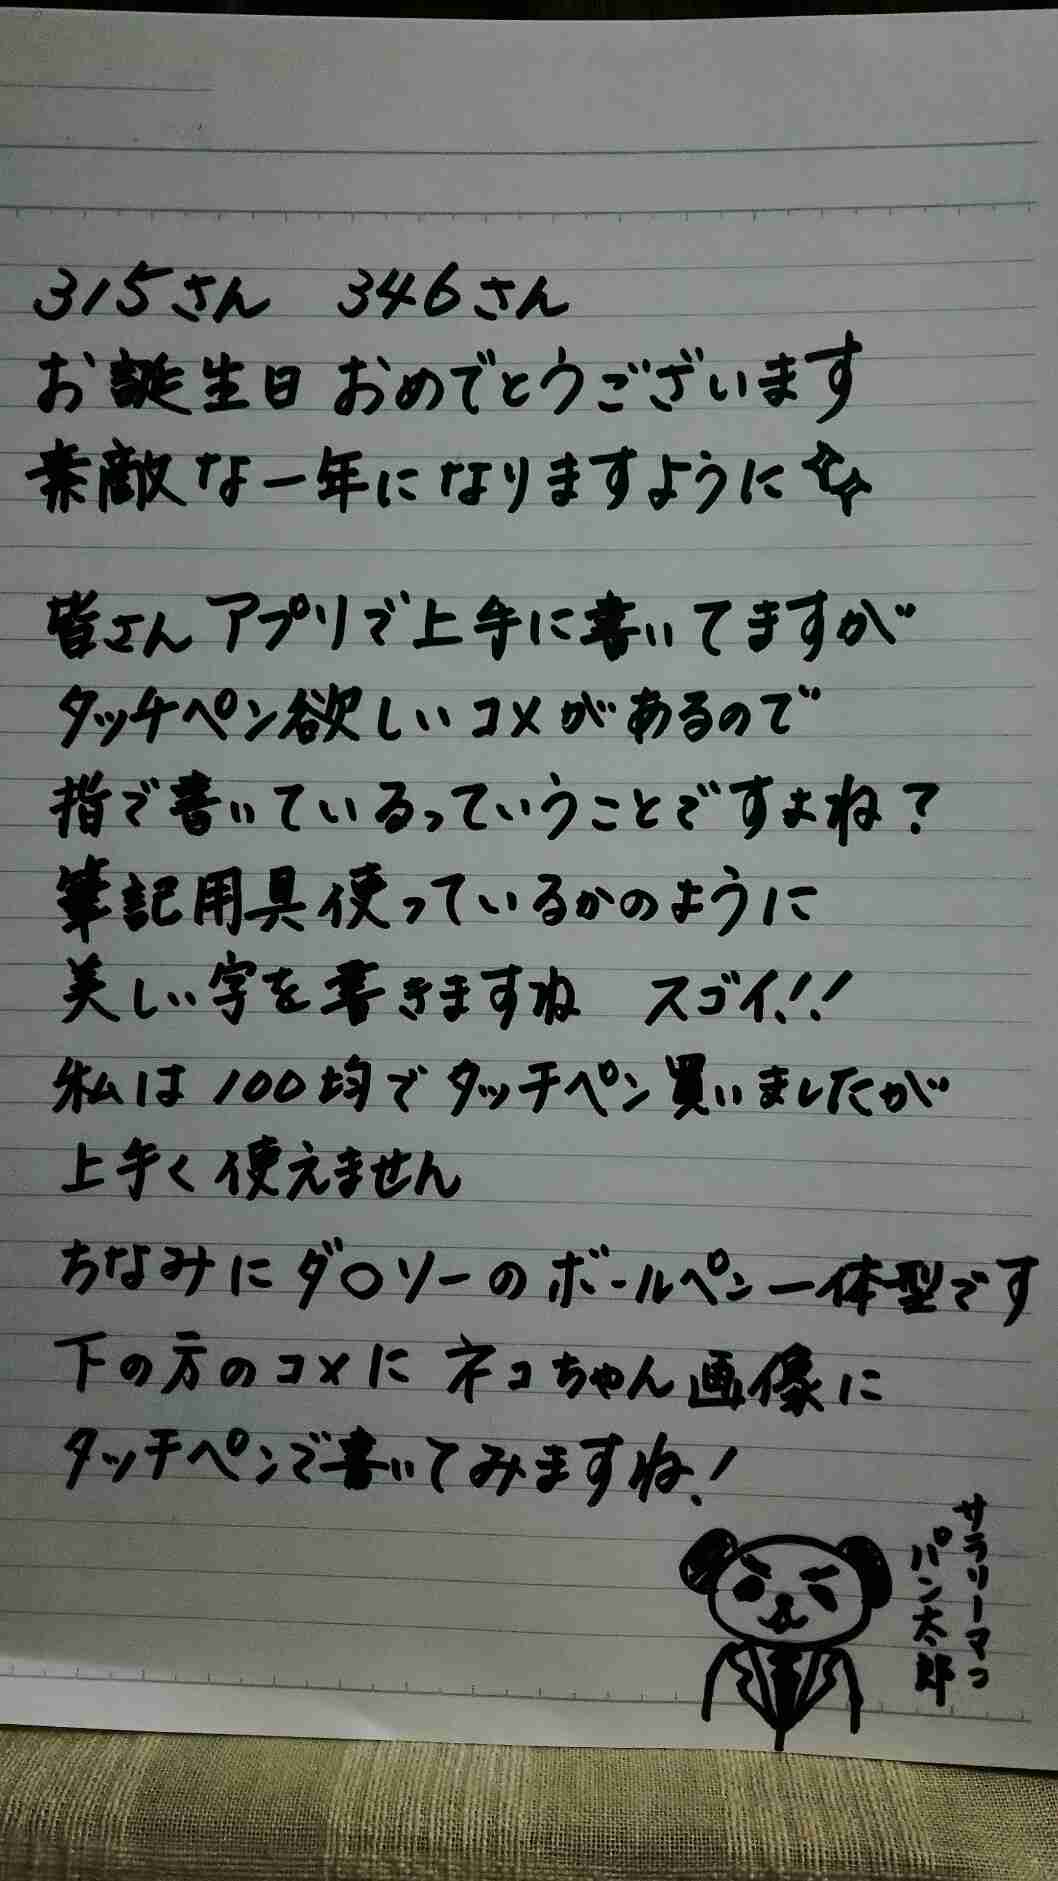 315さん 346さん
お誕生日おめでとうございます
素敵な一年になりますように
皆さんアプリで上手に書いてますが
タッチペン欲しいコメがあるので
指で書いているっていうことですよね?
筆記用具使っているかのように
美しい字を書きますね スゴイ!!
私は100均でタッチペン買いましたが
上手く使えません
ちなみにダ〇ソーのボールペン一体型です
下の方のコメにネコちゃん画像に
タッチペンで書いてみますね!
サラリーマン
パン太郎